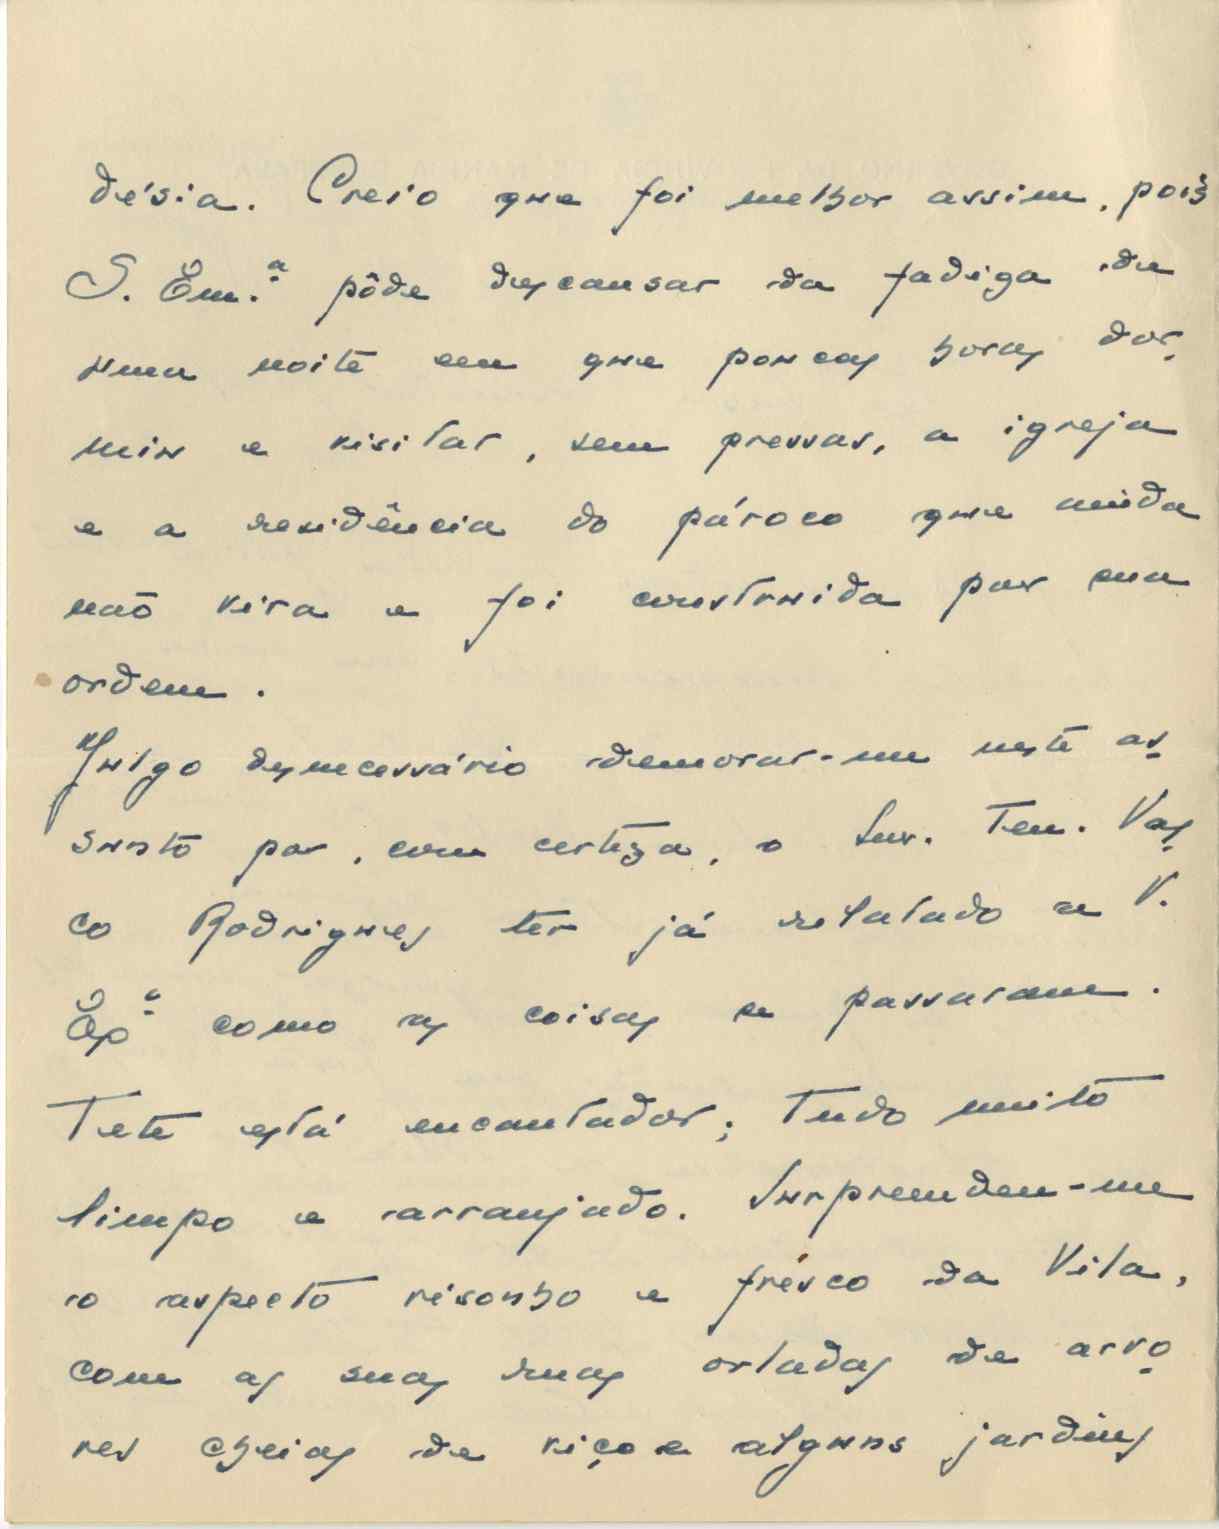 désia. Creio que foi melhor assim, pois
S. Em.ª pôde descansar da fadiga de
uma noite em que poucas horas dor-
miu e visitar, sem pressas, a igreja
e a residência do pároco que ainda
não vira e foi construida por sua
ordem.
Julgo desnecessário demorar-me neste as-
sunto por, com certeza, o Snr. Ten. Vas-
co Rodrigues ter já relatado a V.
Exª como as coisas se passaram.
Tete está encantador; Tudo muito
limpo e arranjado. Surpreendeu-me
o aspecto risonho e frêsco da Vila,
com as suas ruas orladas de arvo-
res cheias de viço e alguns jardins